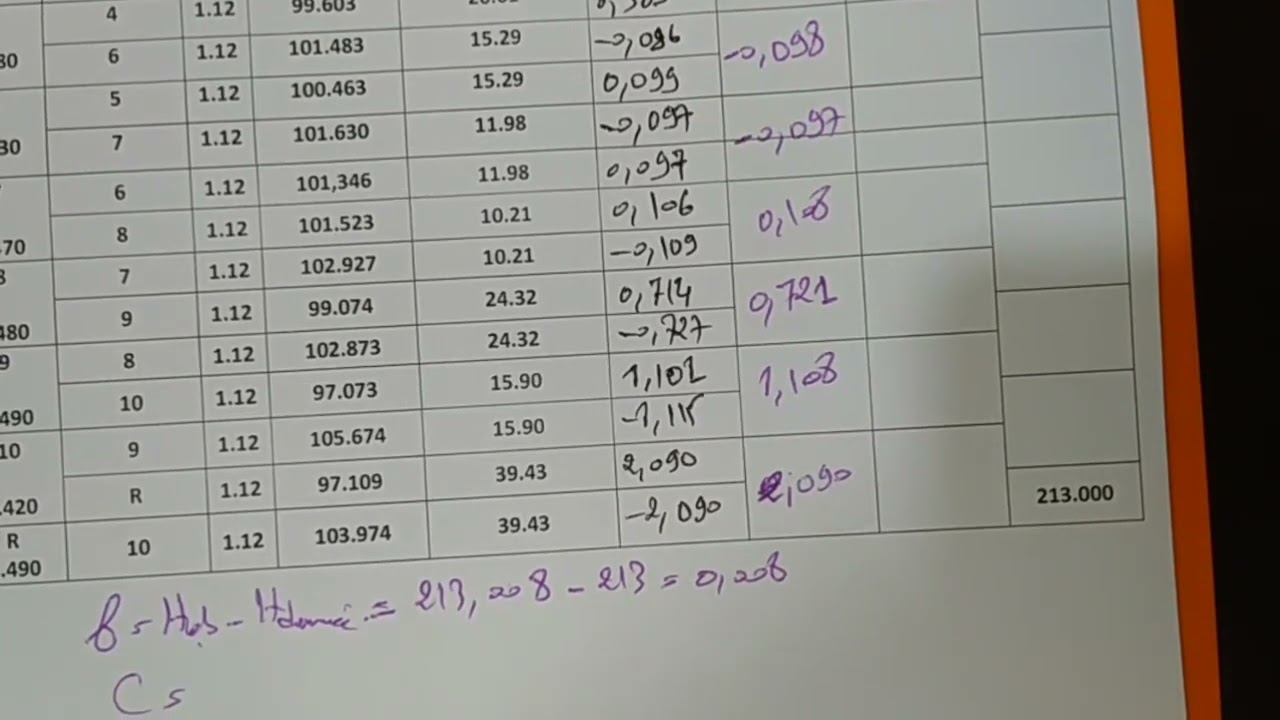 4 1.12 99.603
30 6 1.12 101.483 15.29 -0,086 -0,098
5 1.12 100.463 15.29 0,099
30 7 1.12 101.630 11.98 -0,097 -0,097
6 1.12 101,346 11.98 0,097
70 8 1.12 101.523 10.21 0,106 0,108
7 1.12 102.927 10.21 -0,109
480 9 1.12 99.074 24.32 0,714 0,721
9 8 1.12 102.873 24.32 -0,727
490 10 1.12 97.073 15.90 1,101 1,108
10 9 1.12 105.674 15.90 -1,115
.420 R 1.12 97.109 39.43 2,090 2,090
R 10 1.12 103.974 39.43 -2,090 213.000
.490
= 213,008 - 213 = 0,008
C =